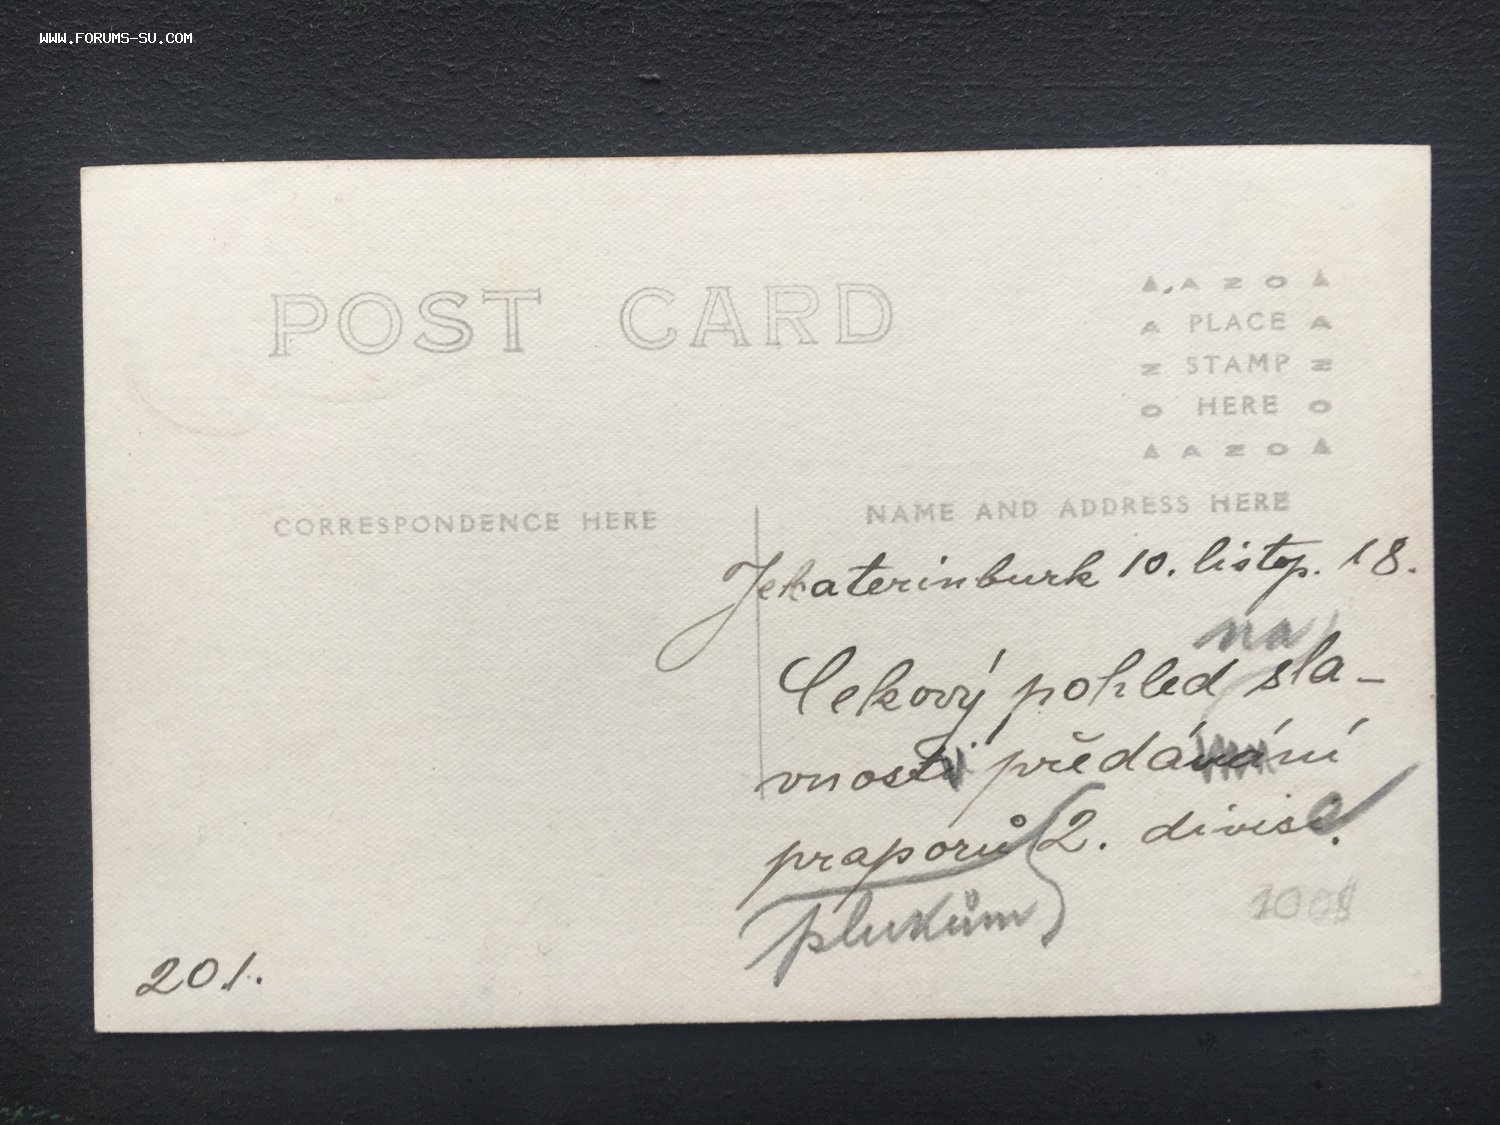 WWW.FORUMS-SU.COM
POST CARD
A A Z O A
A PLACE A
Z STAMP Z
O HERE O
A A Z O A
CORRESPONDENCE HERE
NAME AND ADDRESS HERE
Jekaterinburk 10. listop. 18.
na
Celkový pohled sla-
vnosti předávání
praporů 2. divise.
plukům
1008
201.